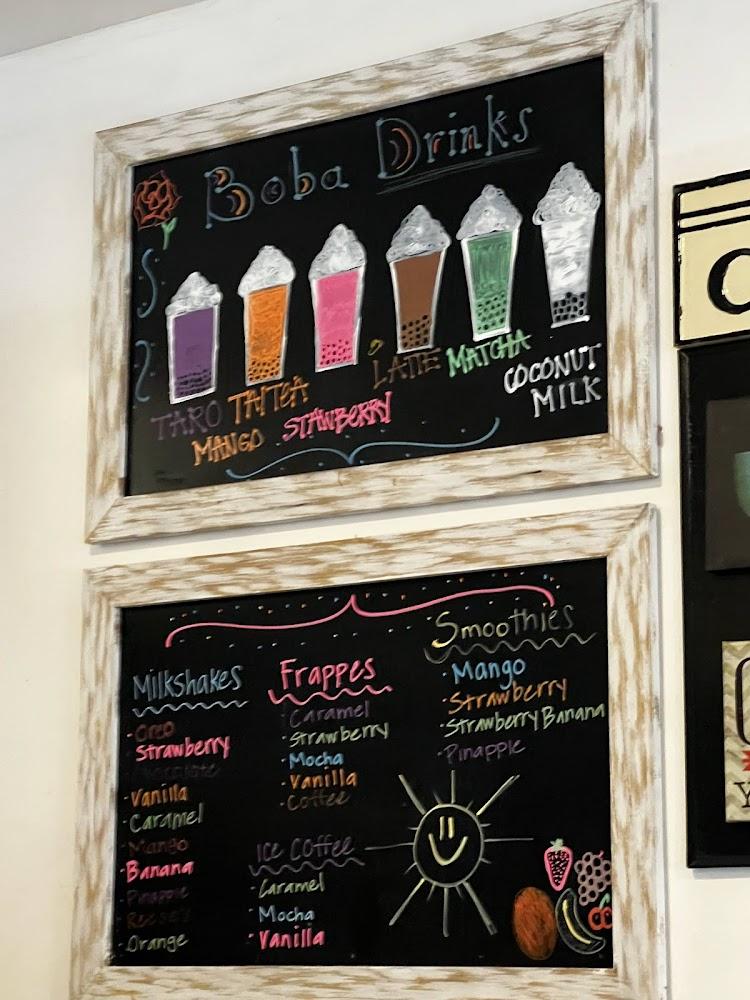 Boba Drinks
TARO
TAITEA
MANGO
STAWBERRY
LATTE
MATCHA
COCONUT
MILK
Milkshakes
· Oreo
· Strawberry
· Chocolate
· Vanilla
· Caramel
· Mango
· Banana
· Pinapple
· Reese's
· Orange
Frappes
· Caramel
· Strawberry
· Mocha
· Vanilla
· Coffee
Ice Coffee
· Caramel
· Mocha
· Vanilla
Smoothies
· Mango
· Strawberry
· Strawberry Banana
· Pinapple